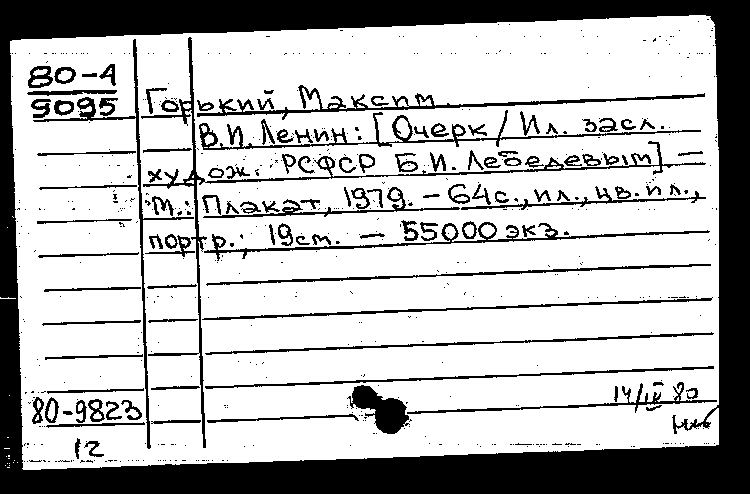 80-4
9095
Горький, Максим.
В.И. Ленин: [Очерк / Ил. засл.
худож. РСФСР Б.И. Лебедевым]. —
М.: Плакат, 1979. – 64с., ил., цв. ил.,
портр.; 19см. — 55000 экз.
80-9823
12
14/IV 80